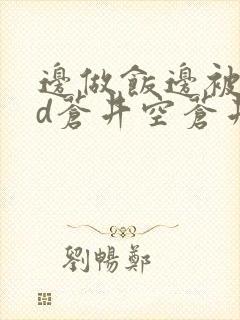 邊做飯邊被
d蒼井空蒼井
劉暢鄭